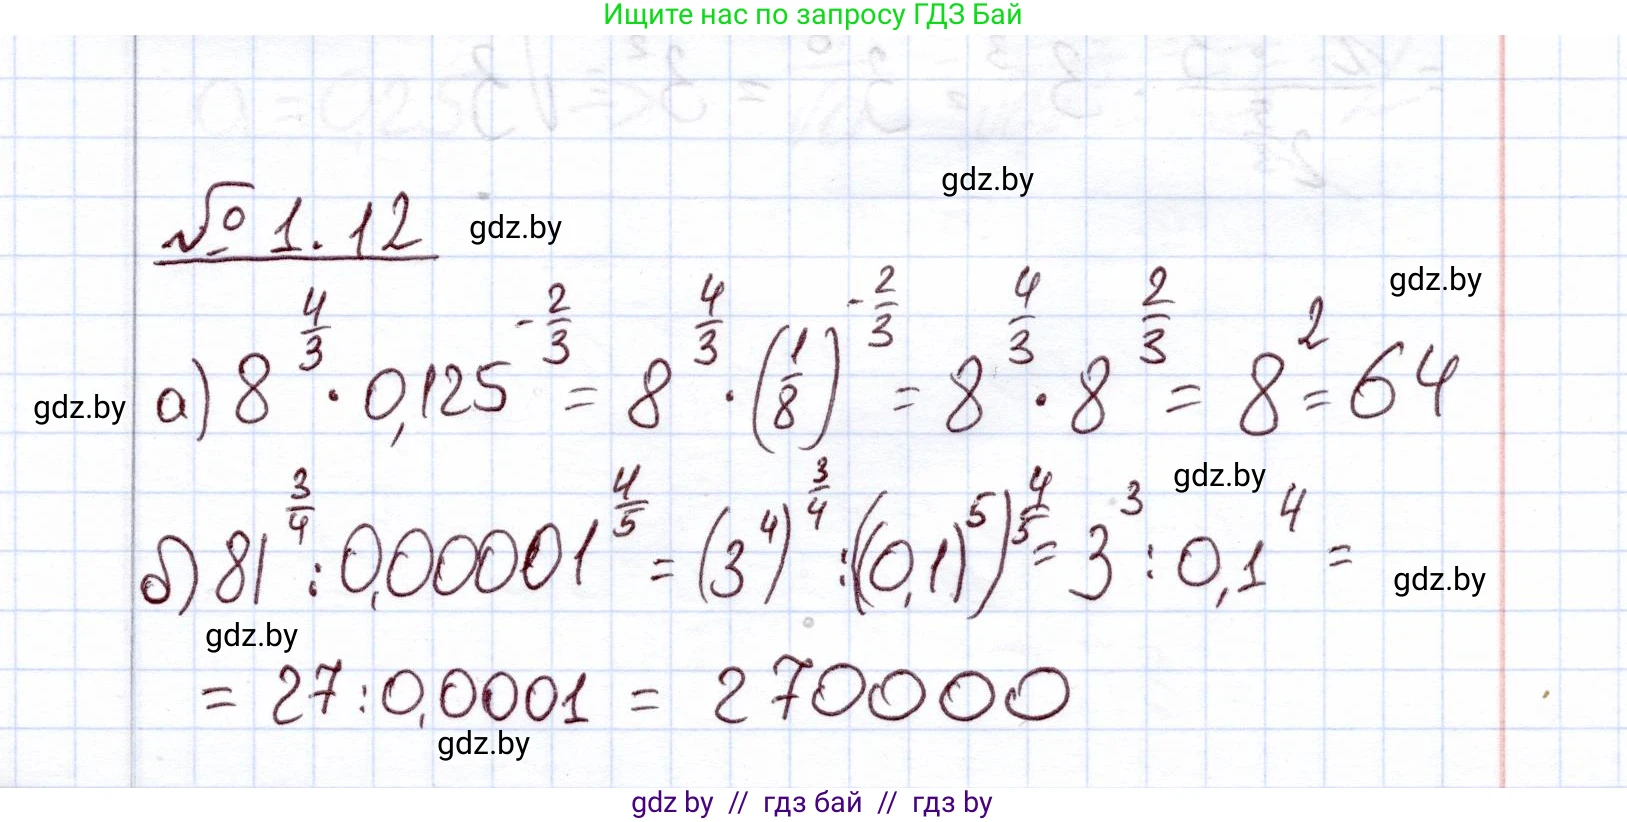 Ищите нас по запросу ГДЗ Бай
gdz.by
№ 1.12 gdz.by
gdz.by
gdz.by а) 8^{4/3} · 0,125^{-2/3} = 8^{4/3} · (1/8)^{-2/3} = 8^{4/3} · 8^{2/3} = 8^2 = 64
gdz.by
б) 81^{3/4} : 0,00001^{4/5} = (3^4)^{3/4} : ((0,1)^5)^{4/5} = 3^3 : 0,1^4 =
gdz.by
gdz.by
= 27 : 0,0001 = 270000
gdz.by
gdz by // гдз бай // гдз by